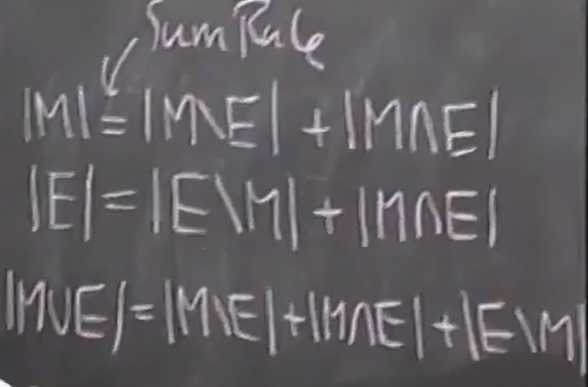 Sum Rule
|M| = |M\E| + |M∩E|
|E| = |E\M| + |M∩E|
|M∪E| = |M\E| + |M∩E| + |E\M|